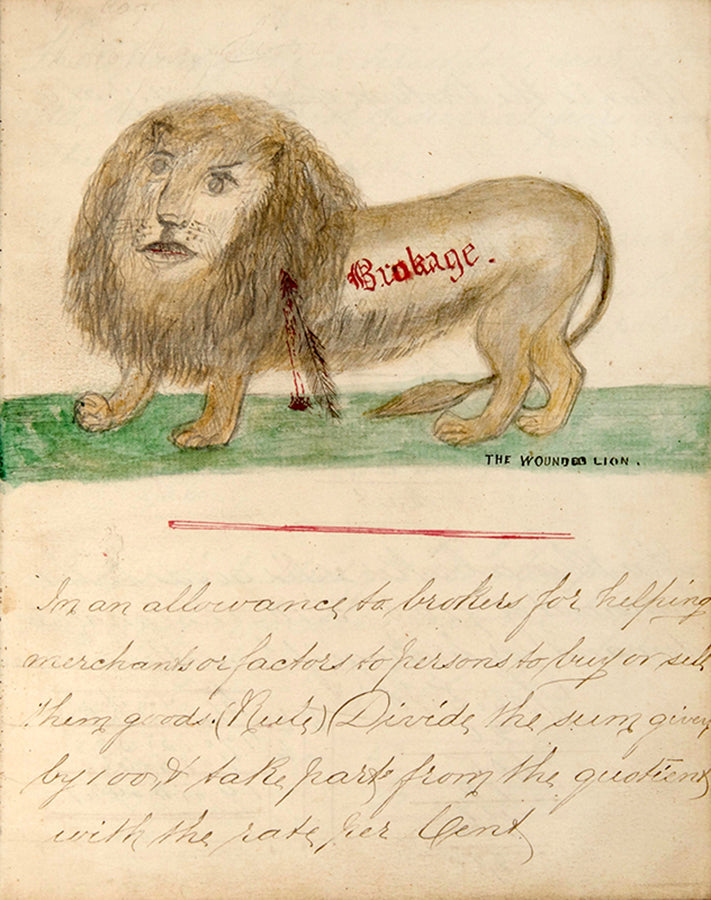 Brokage.
THE WOUNDED LION.
In an allowance to brokers for helping
merchants or factors to persons to buy or sell
them goods. (Rule) Divide the sum given
by 100, & take parts from the quotient
with the rate per Cent